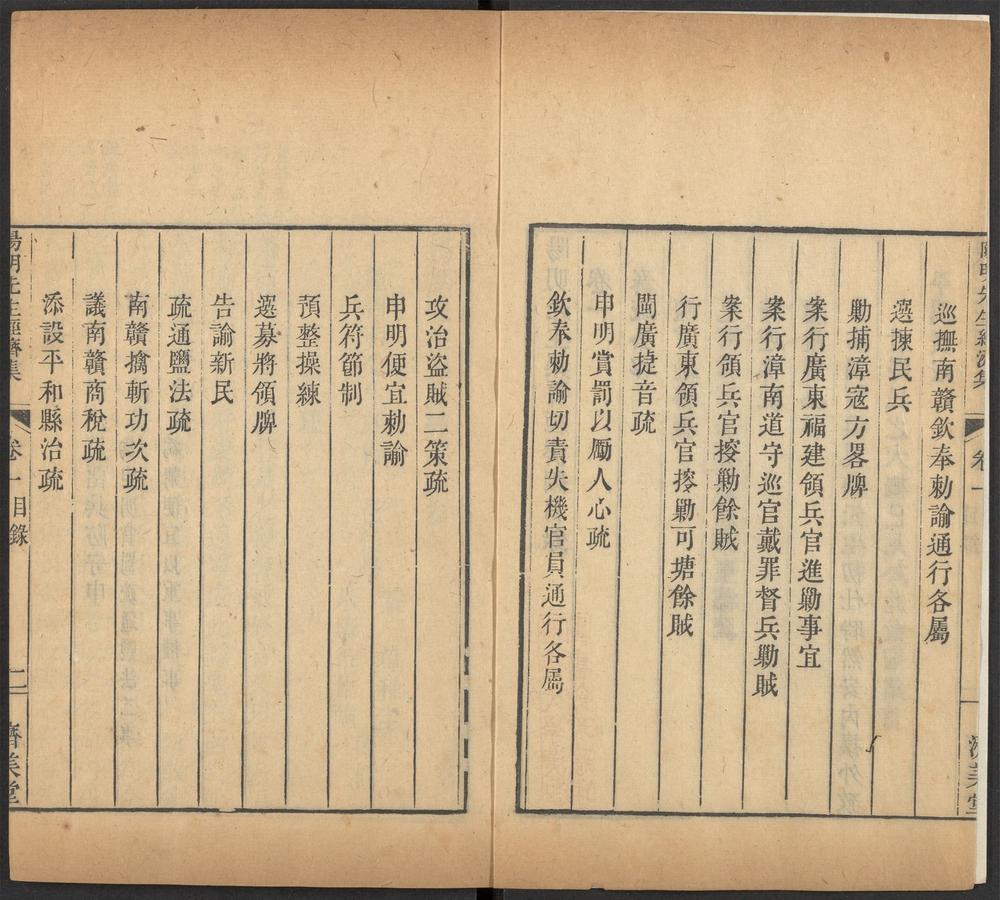 巡撫南贛欽奉勅諭通行各屬
選揀民兵
勦捕漳寇方畧牌
案行廣東福建領兵官進勦事宜
案行漳南道守巡官戴罪督兵勦賊
案行領兵官搜勦餘賊
行廣東領兵官搜勦可塘餘賊
閩廣捷音疏
申明賞罰以勵人心疏
欽奉勅諭切責失機官員通行各屬
攻治盜賊二策疏
申明便宜勅諭
兵符節制
預整操練
選募將領牌
告諭新民
疏通鹽法疏
南贛擒斬功次疏
議南贛商稅疏
添設平和縣治疏
陽明先生經濟集 卷一目錄 二 濟美堂